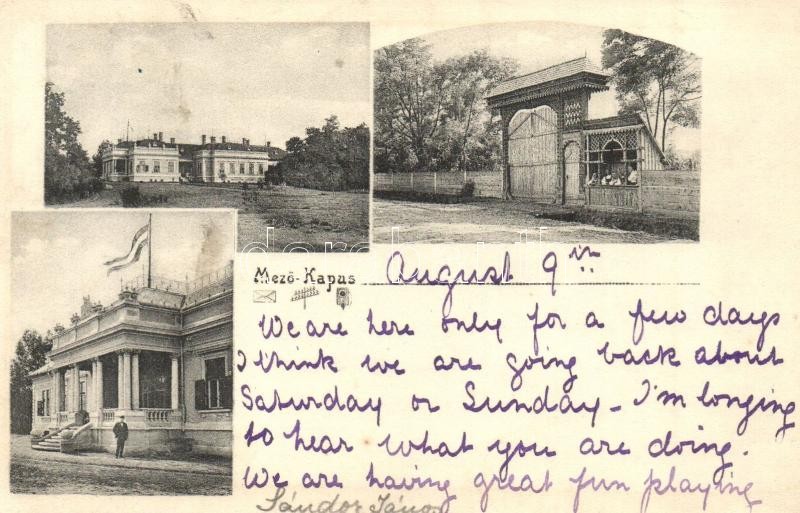 Mező-Kapus
August 9th
We are here only for a few days
I think we are going back about
Saturday or Sunday - I'm longing
to hear what you are doing.
We are having great fun playing
Sándor János